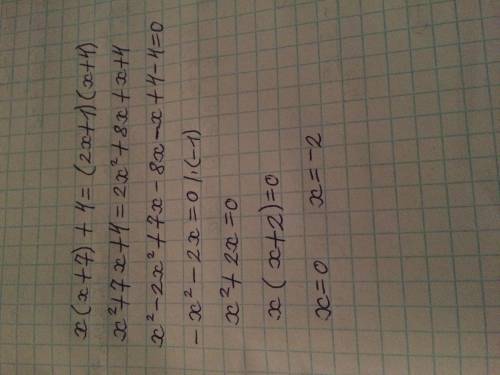 x(x+7)+4=(2x+1)(x+4)
x²+7x+4=2x²+8x+x+4
x²-2x²+7x-8x-x+4-4=0
-x²-2x=0 |·(-1)
x²+2x=0
x(x+2)=0
x=0 x=-2